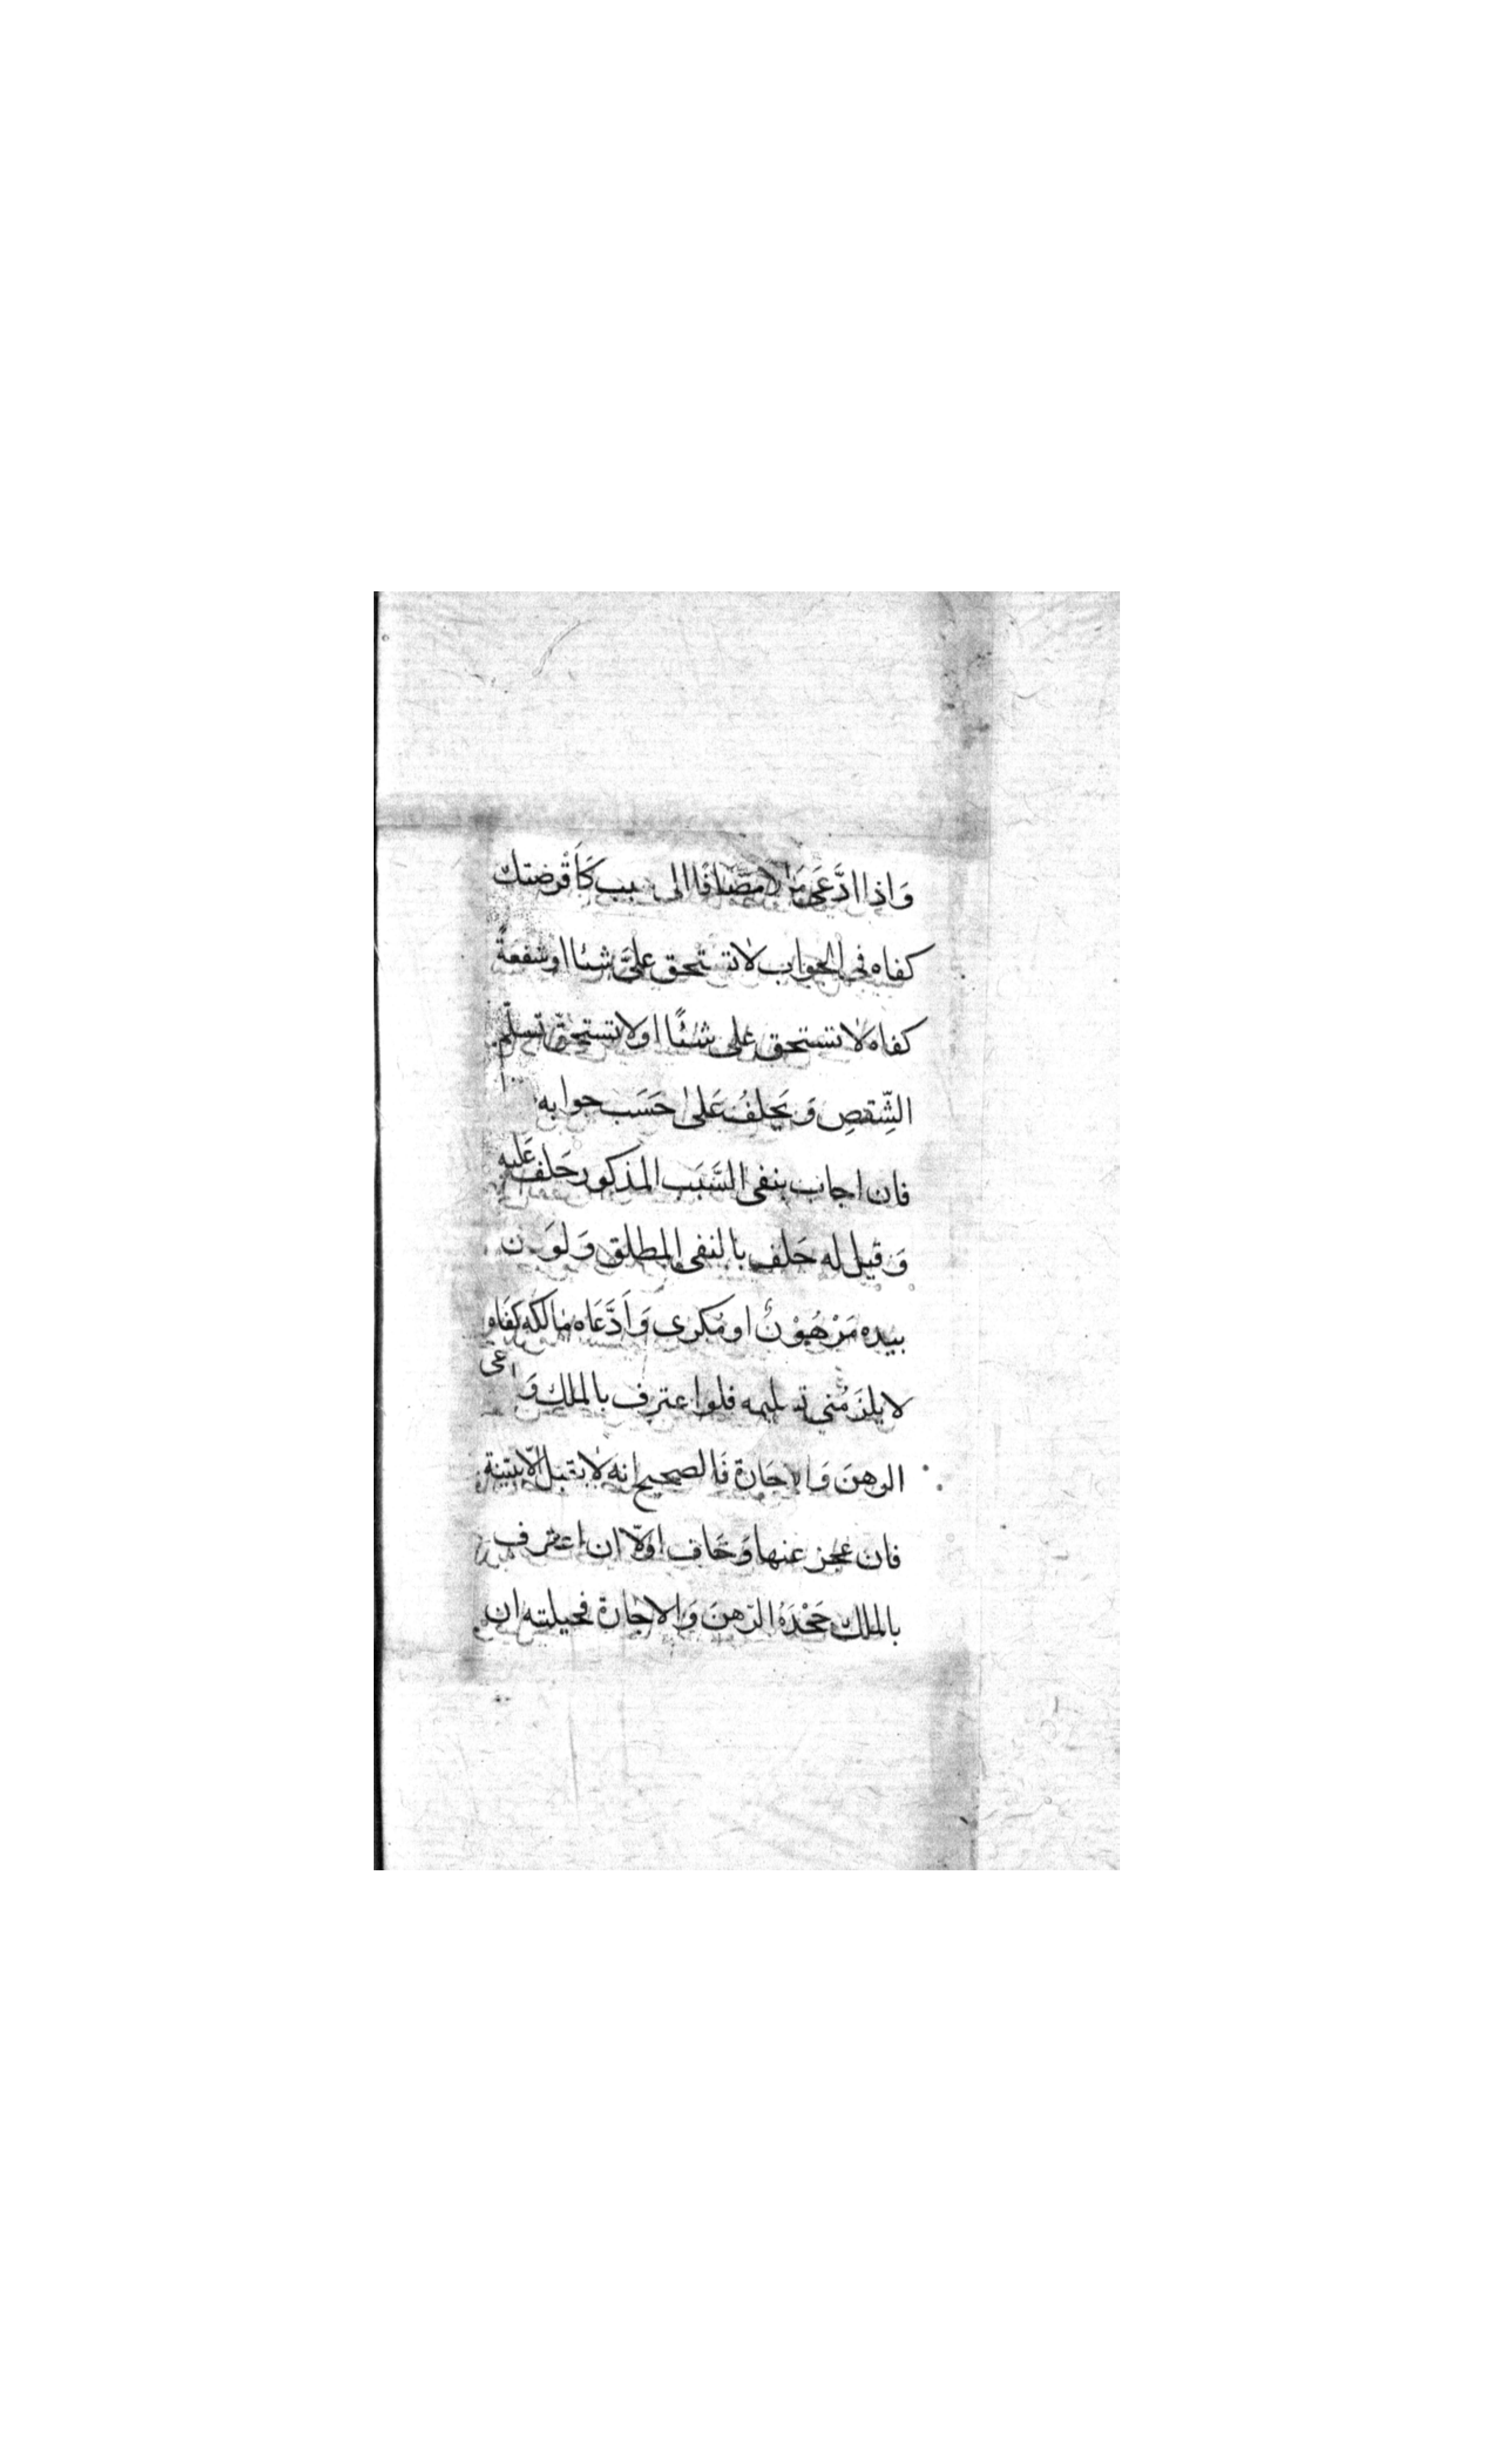 وَاذا ادَّعَى مَالا مضَافًا الى سبب كَأَقْرضتك
كفاه فى الجواب لا تستحق علىَّ شيئا او شفعةً
كفاه لا تستحق على شيئًا او لا تستحق تسليم
الشِّقصِ وَيحلفُ عَلى حَسَب جوابه
فان اجاب بنفى السَّبَب المذكور حَلف عَليه
وَقيل له حَلف بالنفى المطلق وَلوَ ن
بيده مَرْهُوْنٌ او مُكرى وَاَدَّعَاه مالكه كفَاه
لا يلزَمُنى تسليمه فلو اعترف بالملك وَادعى
الرهنَ وَالاجَارة فَالصحيح انه لا يقبل الّا ببينة
فان عجز عنها وَخَاف اوّلا ان اعترف
بالملك جَحْدَهُ الرّهنَ وَالاجَارة فحيلته ان